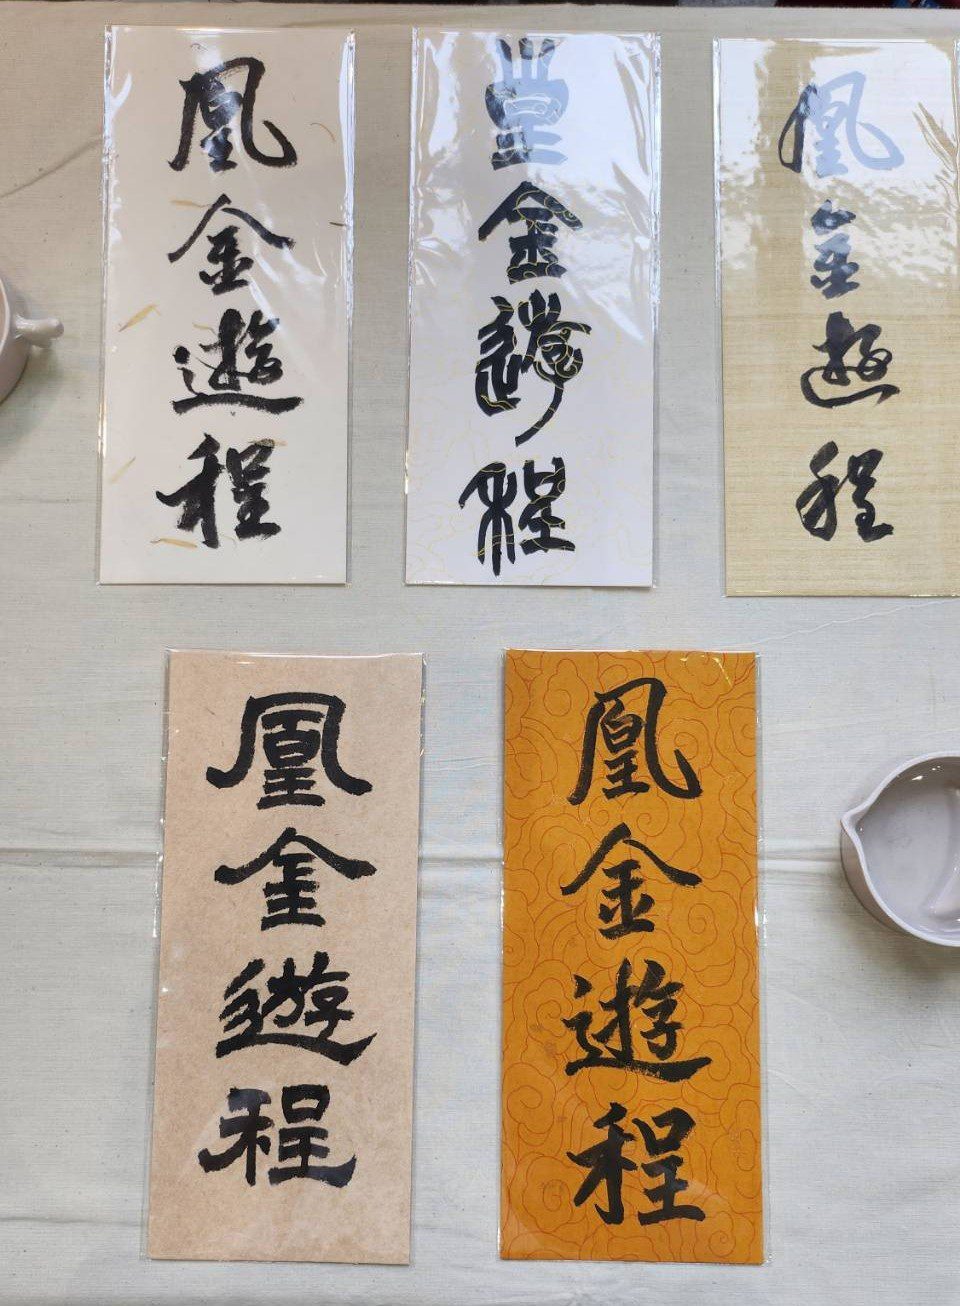 凰金遊程
皇金遊程
凰金遊程
凰金遊程
凰金遊程